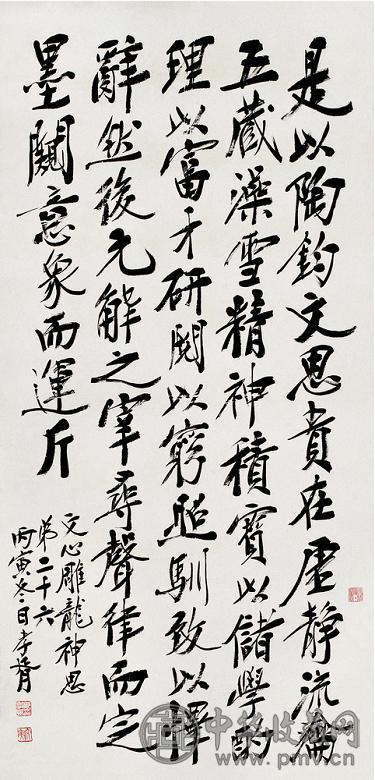 是以陶鈞文思貴在虛靜疏瀹
五藏澡雪精神積寶以儲學酌
理以富才研閱以窮照馴致以繹
辭然後元解之宰尋聲律而定
墨闚意象而運斤
文心雕龍神思
弟二十六
丙寅冬日孝胥
中华收藏网